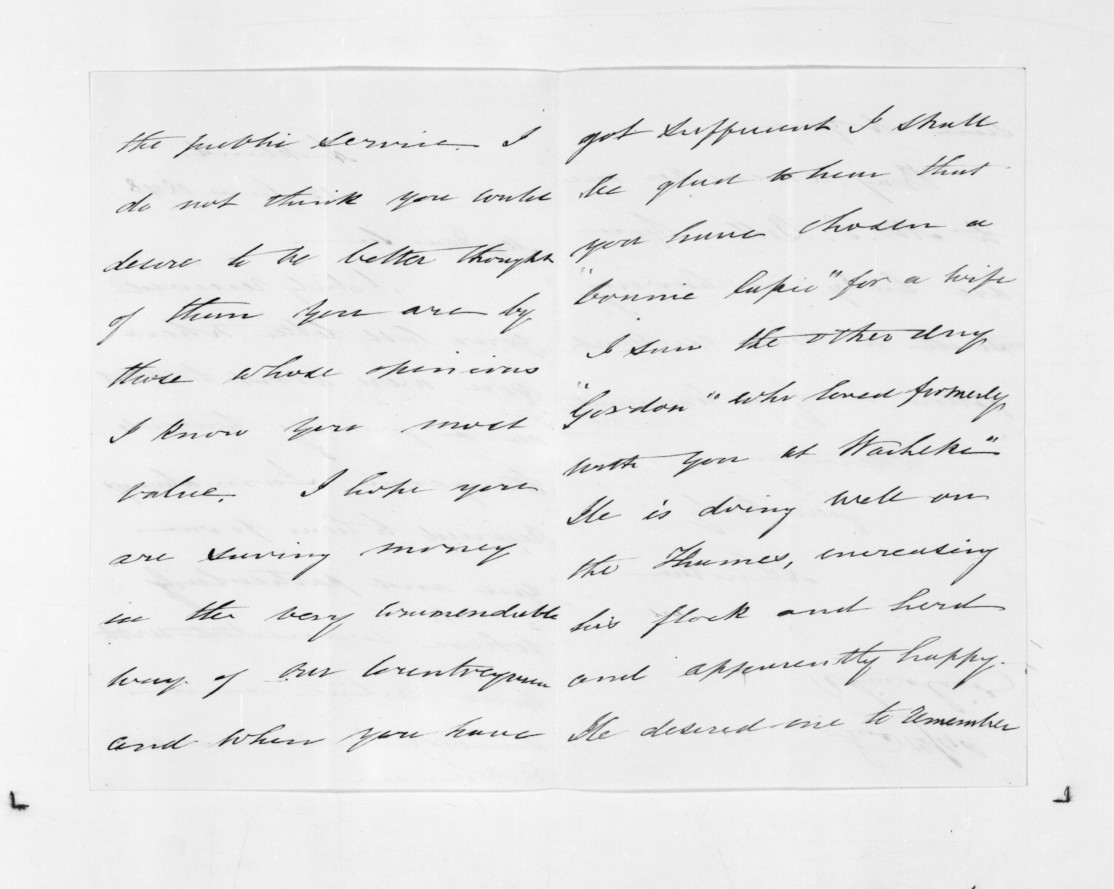 the public service. I
do not think you could
desire to be better thought
of than you are by
those whose opinions
I know you most
value. I hope you
are saving money
in the very commendable
way of our Countrymen
and when you have
got sufficient I shall
be glad to hear that
you have chosen a
"bonnie lassie" for a wife
I saw the other day
"Gordon" who lived formerly
with you at Waiheke"
He is doing well on
the Thames, increasing
his flock and herd
and apparently happy.
He desired me to remember